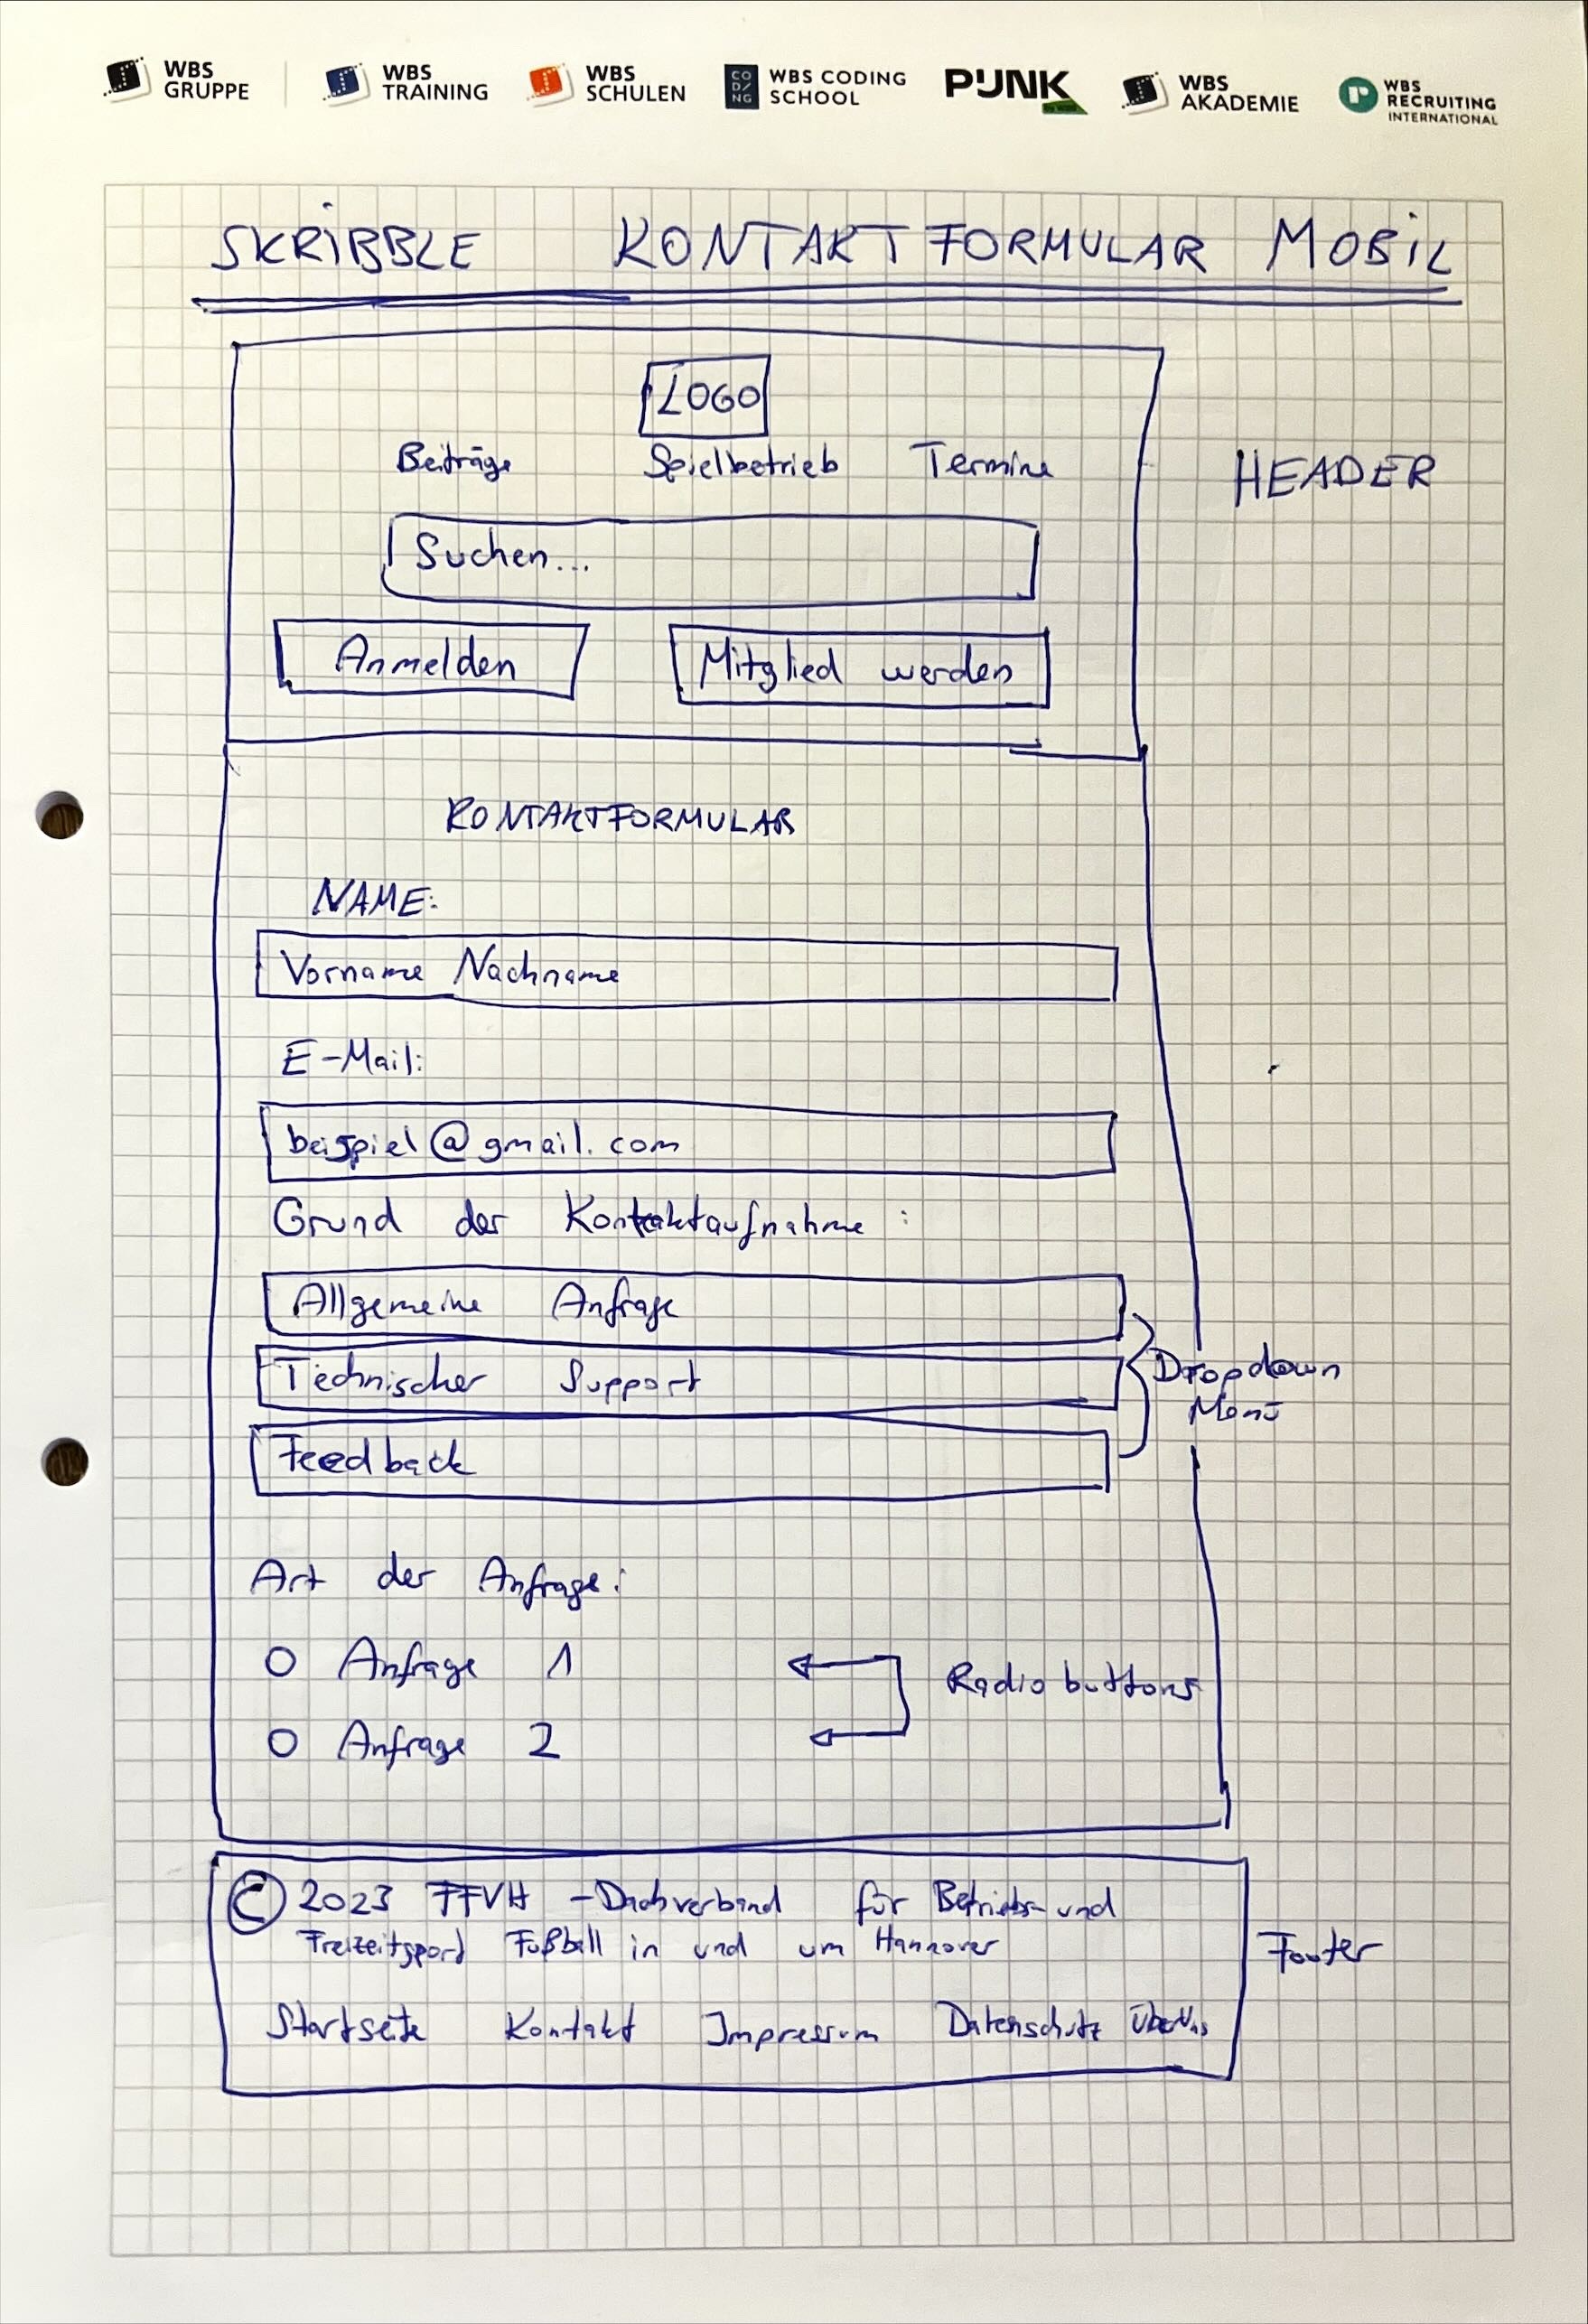 WBS GRUPPE
WBS TRAINING
WBS SCHULEN
CO D/ NG
WBS CODING SCHOOL
PUNK
WBS AKADEMIE
WBS RECRUITING INTERNATIONAL
SKRIBBLE KONTAKTFORMULAR MOBIL
LOGO
Beiträge Spielbetrieb Termine
HEADER
Suchen...
Anmelden Mitglied werden
KONTAKTFORMULAR
NAME:
Vorname Nachname
E-Mail:
beispiel@gmail.com
Grund der Kontaktaufnahme :
Allgemeine Anfrage
Technischer Support
Dropdown
Menü
Feedback
Art der Anfrage:
O Anfrage 1
Radio buttons
O Anfrage 2
© 2023 FFVH - Dachverband für Betriebs- und
Freizeitsport Fußball in und um Hannover
Footer
Startseite Kontakt Impressum Datenschutz Über Uns